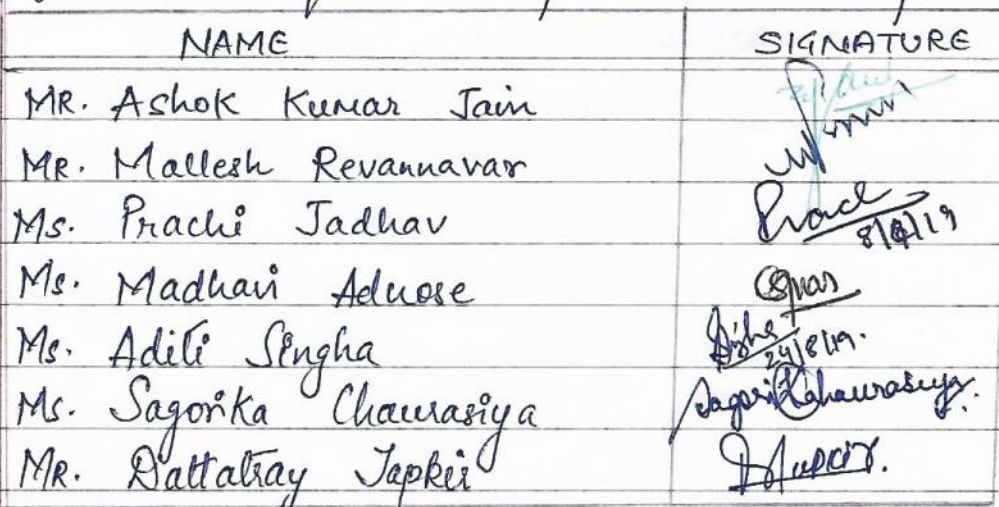 NAME SIGNATURE
MR. Ashok Kumar Jain
MR. Mallesh Revannavar
Ms. Prachi Jadhav Prach 8/8/19
Ms. Madhavi Adnose
Ms. Aditi Singha 24/8/19.
Ms. Sagorika Chaurasiya Sagorika Chaurasiya
MR. Dattatray Japkir DJapkir.